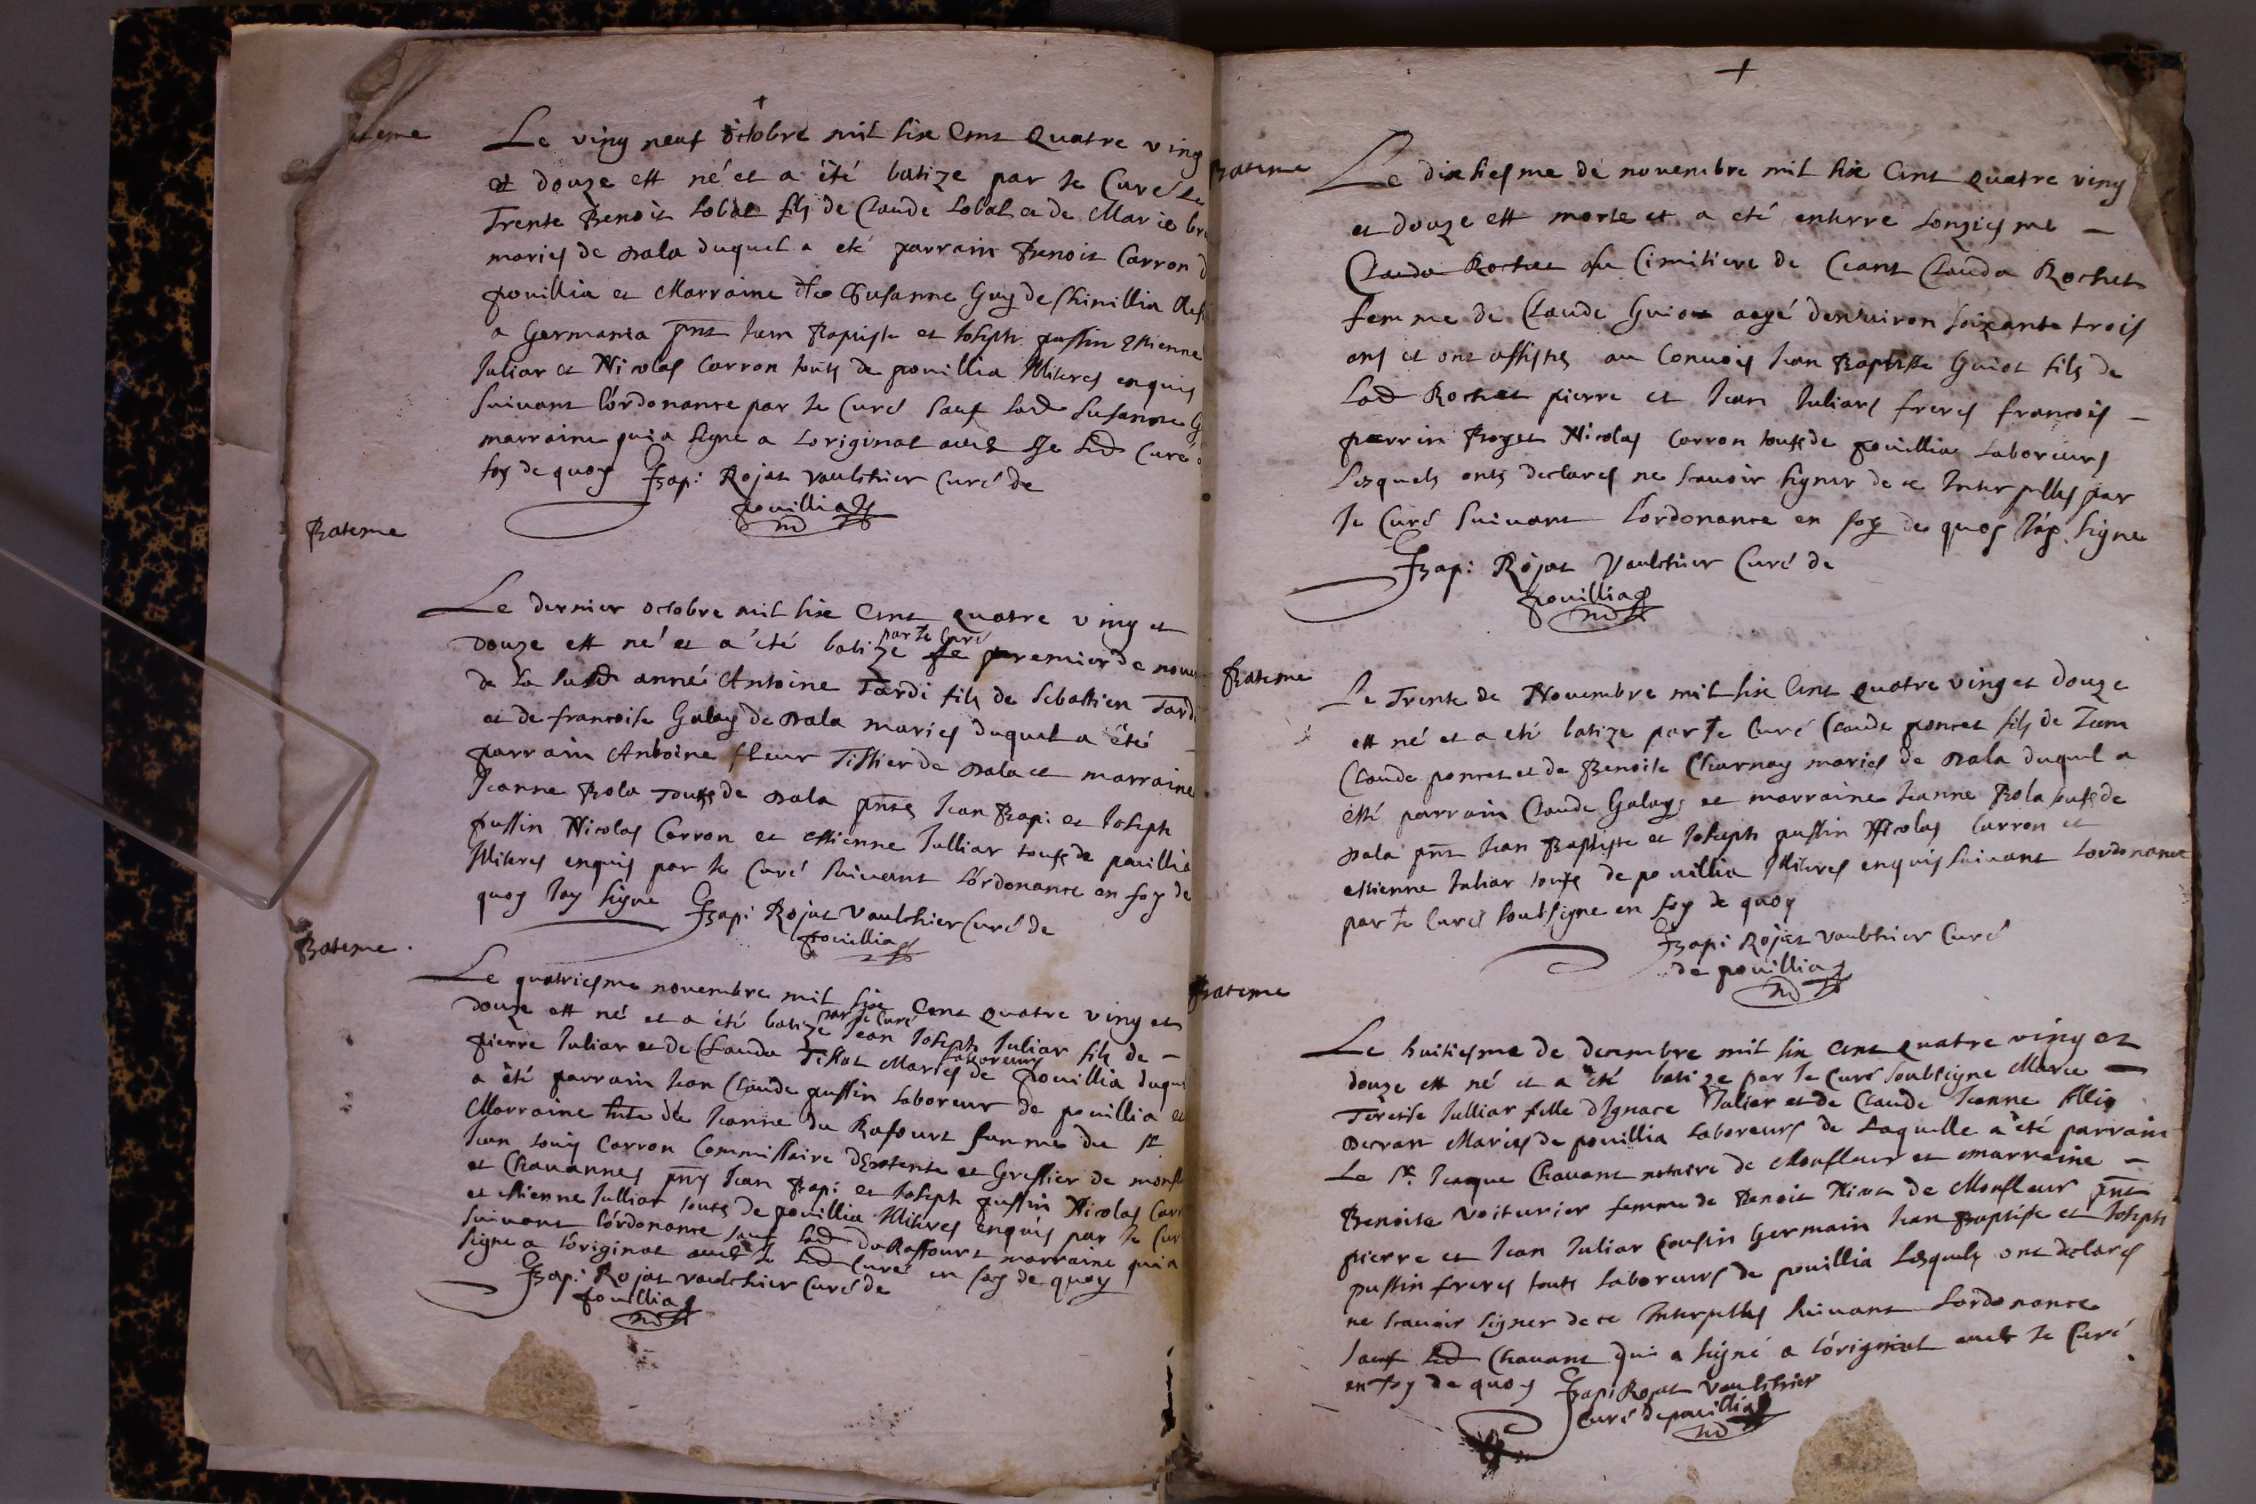 +
Le ving neuf octobre mil sixe Cent quatre ving
et douze est né et a été batize par le Curé Le
Trente Benoit Lobat fils de Claude Lobat et de Marie
maries de nala duquel a eté parrain Benoit Carron
pouillia et Marraine Susanne Guy de
a Germania pnt Jean Baptiste et Joseph pussin Etienne
Juliar et Nicolas Carron touts de pouillia Illitres enquis
suivant l'órdonance par le Curé sauf lad Susanne G
marraine qui a signe a Loriginal avec le sud Curé
foy de quoy Bapi: Rojat vaulchier Curé de
pouillia
Bateme
Le dernier octobre mil sixe Cent quatre ving et
par le Curé
douze est né et a été batize le premier de nove
de la susd année Antoine Tardi fils de Sebastien Tard
et de francoise Galay de nala maries duquel a été
parrain Antoine fleur Tissier de nala et marraine
Jeanne Bola touts de nala pnts Jean Bapi et Joseph
pussin Nicolas Carron et estienne Julliar touts de pouillia
Illitres enquis par le Curé suivant l'órdonance en foy de
quoy Jay signe Bapi Rojat Vaulchier Curé de
pouillia
Bateme
Le quatriesme novembre mil sixe Cent quatre ving et
par le Curé
douze est né et a été batize Jean Joseph Juliar fils de
laboreurs
pierre Juliar et de Clauda Tissot Maries de pouillia duqu
a été parrain Jean Claude pussin laboreur de pouillia et
Marraine Jeanne du Rafourt femme du sr
Jean Louis Carron Commissaire et Greffier de
et Chavannes pnts Jean Bapi et Joseph pussin Nicolas Car
et estienne Julliar touts de pouillia Illitres enquis par le Cur
suivant l'órdonance sauf lad du Raffourt marraine qui a
signe a l'original avec le sud Curé en foy de quoy
Bapi: Rojat vaulchier Curé de
pouillia
+
Bateme
Le dixhiesme de novembre mil sixe Cent quatre ving
et douze est morte et a eté enterre lonziesme
Clauda Rochet au Cimitiere de Ceant Clauda Rochet
femme de Claude Guiot aegé denviron soixante trois
ans et ont assistes au Convois Jean Baptiste Guiot fils de
Lad Rochet pierre et Jean Juliars freres francois
perrin Roget Nicolas Carron touts de pouillia laboreurs
Lesquels onts declares ne scavoir signer de ce Interpelles par
le Curé suivant l'ordonance en foy de quoy Jay signe
Bapi: Rojat Vaulchier Curé de
pouillia
Bateme
Le Trente de Novembre mil sixe Cent quatre ving et douze
est né et a eté batize par le Curé Claude poncet fils de Jean
Claude poncet et de Benoite Charnay maries de nala duquel a
etté parrain Claude Galay et marraine Jeanne Bola touts de
nala pnt Jean Baptiste et Joseph pussin Nicolas Carron et
estienne Juliar touts de pouillia Illitres enquis suivant Lordonance
par le Curé soubsigne en foy de quoy
Bapi: Rojat vaulchier Curé
de pouillia
Bateme
Le huitiesme de decembre mil six Cent quatre ving et
douze est né et a été batize par le Curé soubsigne Marie
Terese Julliar fille d'Ignace Juliar et de Claude Jeanne
Maries de pouillia laboreurs de Laquelle a été parrain
Le Sr. Jacque Chavant notaire de Monfleur et marraine
Benoite Voiturier femme de Benoit de Monfleur pnt
pierre et Jean Juliar Cousin Germain Jean Baptiste et Joseph
pussin freres touts laboreurs de pouillia Lesquels ont declares
ne scavoir signer de ce Interpelles suivant Lordonance
sauf led Chavant qui a signé a l'original avec le Curé
en foy de quoy Bapi Rojat Vaulchier
Curé de pouillia